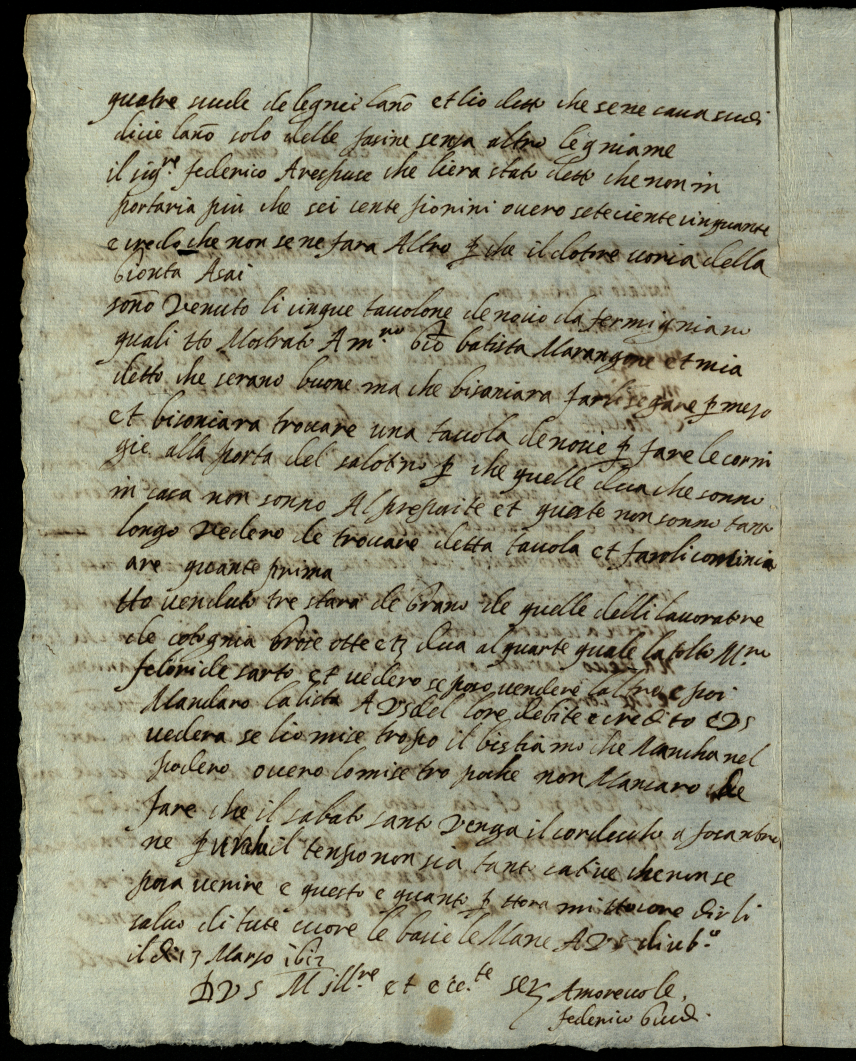 quatre scude de legnie lano et lio detto che se ne cava scudi
dicie lano solo delle fasine senza altro legniame
il sig.re federico Arespuse che liera stato detto che non in
portaria piu che sei cente fiorini overo sete ciente cinquante
e credo che non se ne fara Altro p che il dotore voria della
Gionta Asai
sono Venuto li cinque tavolone de noci da fermigniano
quali tto Mostrato A m.ro Gio batista Marangone et mia
detto che serano buone ma che bisoniara farli segare p mezo
et bisoniara trovare una tavola de noce p fare le corni
gie alla porta del salotino p che quelle dua che sonno
in casa non sonno Al proposite et queste non sonno tanto
longo Vedero de trovare detta tavola et faroli cominci
are quante prima
tto venduto tre stara de Grano de quelle delli lavoratore
de cotognia Groie otte et dua al quarte quale la tolto M.ro
de sarto et vedero se poso vendere laltro e poi
Mandaro la lista A VS del lore debite e credito e VS
vedera se lio mise tropo il bistiamo che Mancha nel
podero overo lo mise tro poche non Mancaro de
fare che il sabato santo Venga il a fosanbro
ne p il tenpo non sia tanto cative che non se
posa venire e questo e quanto p ttora mi ttocore dirli
salvo di tute cuore le bacio le Mane A VS di ub.o
il di 17 Marzo 1617
D VS M Ill.re et ecc.te ser Amorevole
federico Guid.